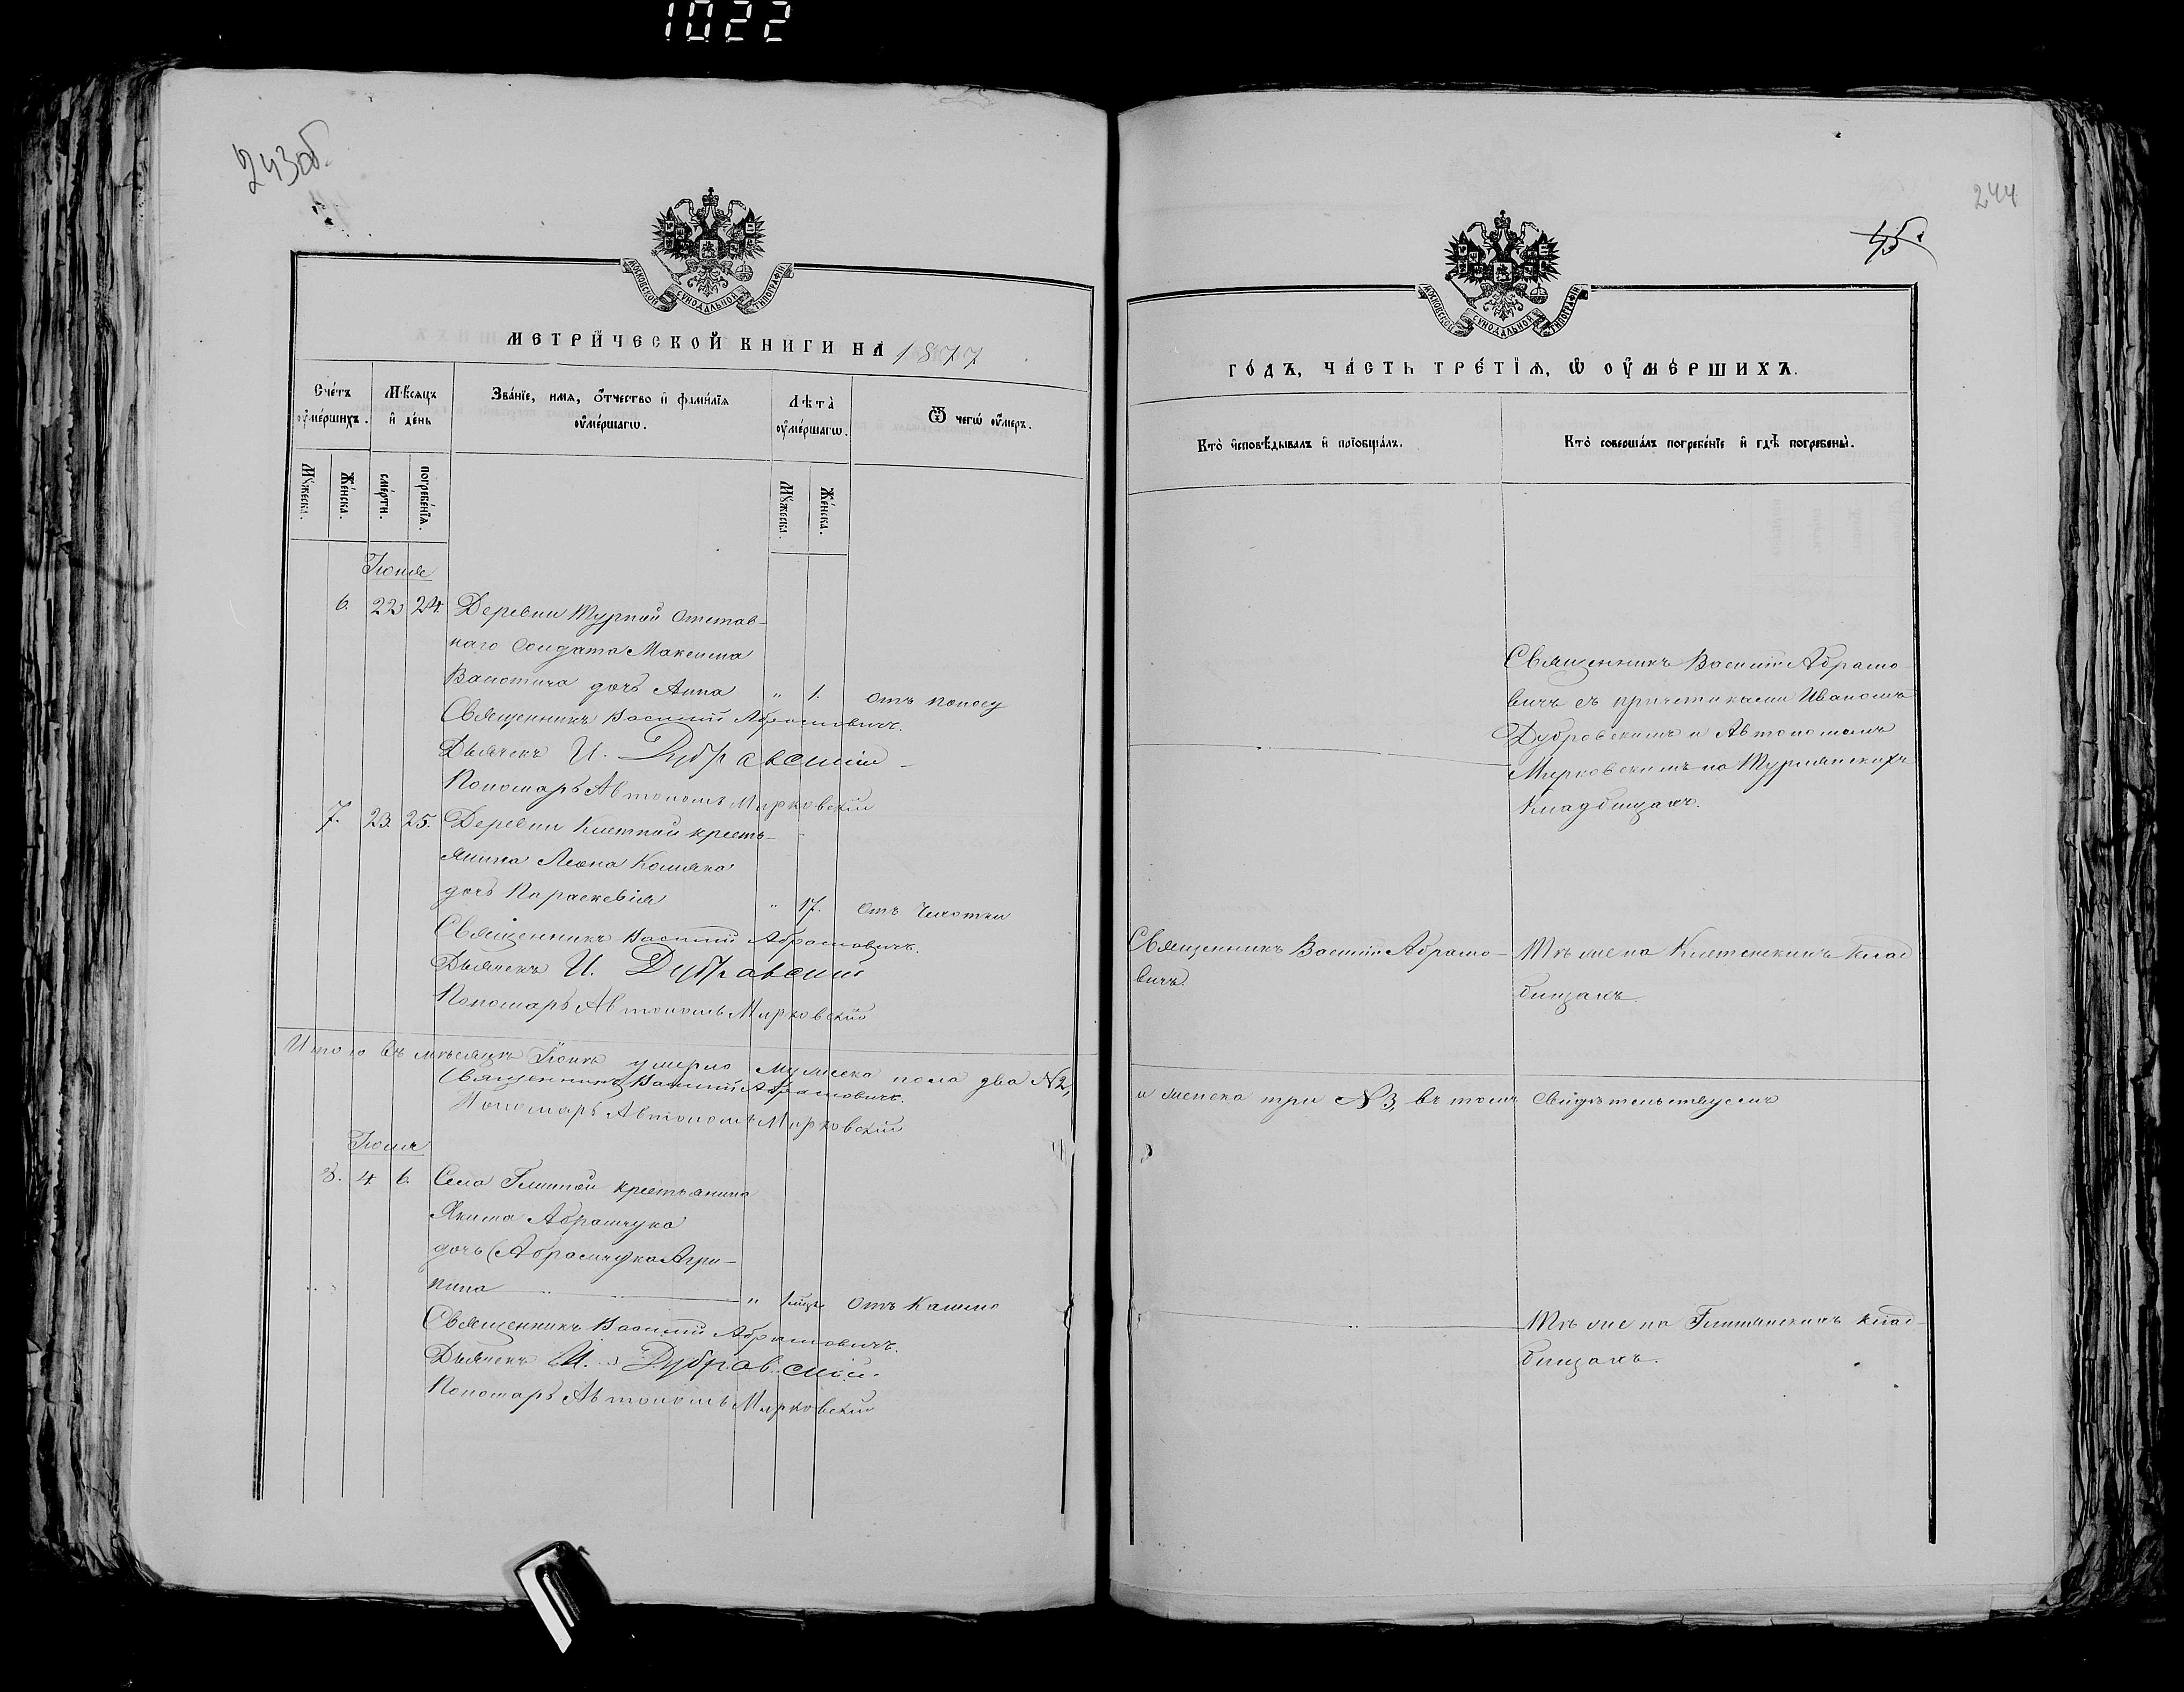 1022
243об.
МОСКОВСКОЙ СѴНОДАЛЬНОЙ ТИПОГРАФІИ
МЕТРИ́ЧЕСКОЙ КНИ́ГИ НА̀ 1877
Сче́тъ ᲂу҆ме́ршихъ.
Мѣ́сяцъ и҆ де́нь
Зва́нїе, имѧ, ѻ҆́тчество и҆ фамилїѧ ᲂу҆ме́ршагѡ.
Лѣта̀ ᲂу҆ме́ршагѡ.
Ѿ чегѡ̀ ᲂу҆́меръ.
Мꙋжеска.
Же́нска.
сме́рти.
погребе́нїѧ.
Мꙋ́жеска.
Же́нска.
Іюня
6. 22 24. Деревни Турной отстав-
наго солдата Максима
дочь Анна " 1. отъ поносу
Священникъ Василій Абрамовичъ.
Дьячекъ И. Дубравский
Пономарь Автономъ Мирковскій
7. 23. 25. Деревни Клетной кресть-
янина Леона Комяка
дочь Параскевія " 17. отъ чахотки
Священникъ Василій Абрамовичъ.
Дьячекъ И. Дубравский
Пономарь Автономъ Мирковскій
Итого въ мѣсяцѣ Іюнѣ умерло мужеска пола два №2,
Священникъ Василій Абрамовичъ.
Пономарь Автономъ Мирковскій
Іюля
8. 4 6. Села Глинной крестьянина
Якима Абрамчука
дочь (Абрамчука Агри-
пина " 1 отъ кашля
Священникъ Василій Абрамовичъ.
Дьячекъ И. Дубравский.
Пономарь Автономъ Мирковскій
244
45.
МОСКОВСКОЙ СѴНОДАЛЬНОЙ ТИПОГРАФІИ
ГО́ДЪ, ЧА́СТЬ ТРЕ́ТЇѦ, Ѡ҆ ᲂУ҆МЕ́РШИХЪ.
Кто̀ и҆сповѣ́дывалъ и҆ прїѻбща́лъ.
Кто̀ соверша́лъ погребе́нїе и҆ гдѣ̀ погребены̀.
Священникъ Василій Абрамо-
вичъ съ причетниками Иваномъ
Дубровскимъ и Автономомъ
Мирковскимъ на Турнянскихъ
кладбищахъ.
Священникъ Василій Абрамо- Тѣ же на Клетенскихъ клад
вичъ. бищахъ.
и женска три №3, въ томъ свидѣтельствуемъ
Тѣ же на Глинянскихъ клад-
бищахъ.